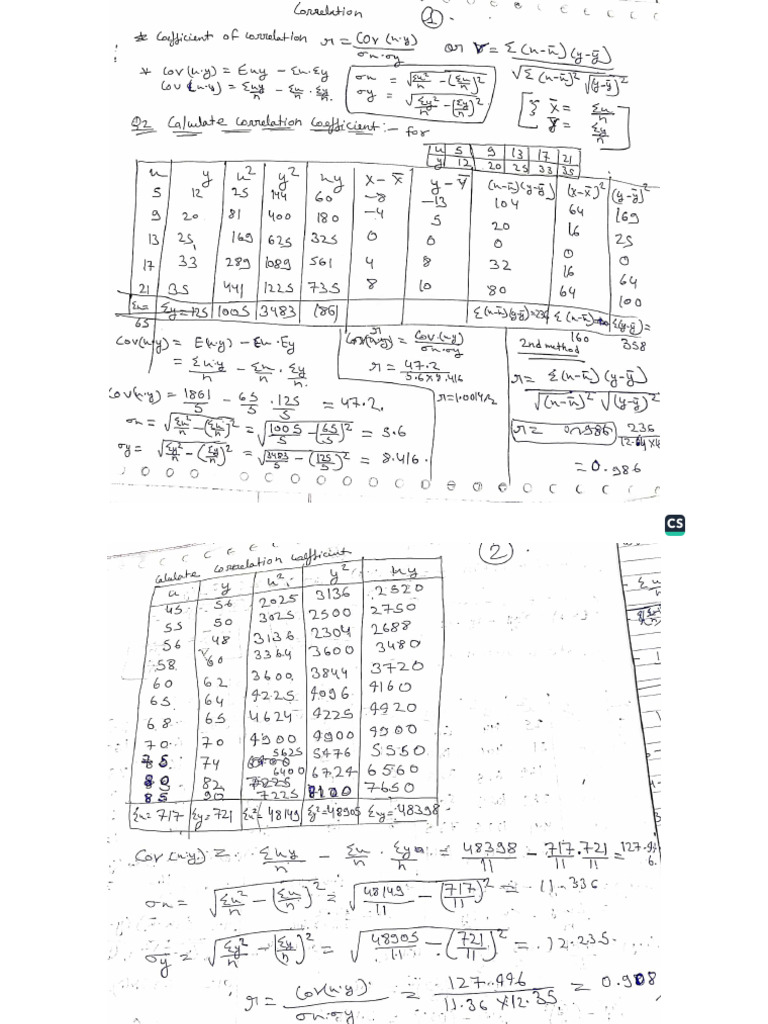 Correlation ①.
* Coefficient of correlation r = Cov(x·y) / σx·σy or r = Σ(x-x̄)(y-ȳ) / √Σ(x-x̄)² √(y-ȳ)²
* Cov(x·y) = Exy - Ex·Ey
Cov(x·y) = Σxy/n - Σx/n · Σy/n
σx = √Σx²/n - (Σx/n)²
σy = √Σy²/n - (Σy/n)²
[ { x̄ = Σx/n
ȳ = Σy/n ]
Q2 Calculate correlation coefficient:- for
x 5 9 13 17 21
y 12 20 25 33 35
x y x² y² xy x-x̄ y-ȳ (x-x̄)(y-ȳ) (x-x̄)² (y-ȳ)²
5 12 25 144 60 -8 -13 104 64 169
9 20 81 400 180 -4 5 20 16 25
13 25 169 625 325 0 0 0 0 0
17 33 289 1089 561 4 8 32 16 64
21 35 441 1225 735 8 10 80 64 100
Σx= 65 Σy=125 1005 3483 1861 Σ(x-x̄)(y-ȳ)=236 Σ(x-x̄)= 160 Σ(y-ȳ)= 358
Cov(x·y) = E(xy) - Ex·Ey
= Σxy/n - Σx/n · Σy/n
Cov(x·y) = 1861/5 - 65/5 · 125/5 = 47.2.
σx = √Σx²/n - (Σx/n)² = √1005/5 - (65/5)² = 5.6
σy = √Σy²/n - (Σy/n)² = √3483/5 - (125/5)² = 8.416.
r = Cov(xy) / σx·σy
r = 47.2 / 5.6 x 8.416
r = 1.00142
2nd method
r = Σ(x-x̄)(y-ȳ) / √(x-x̄)² √(y-ȳ)²
r = 0.986 236
= 0.986
CS
②.
Calculate correlation coefficient
x y x² y² xy
45 56 2025 3136 2520
55 50 3025 2500 2750
56 48 3136 2304 2688
58 60 3364 3600 3480
60 62 3600 3844 3720
65 64 4225 4096 4160
68 65 4624 4225 4420
70 70 4900 4900 4900
75 74 5625 5476 5550
80 82 6400 6724 6560
85 90 7225 8100 7650
Σx=717 Σy=721 Σx²=48149 Σy²=48905 Σxy=48398
Cov(x·y) = Σxy/n - Σx/n · Σy/n = 48398/11 - 717/11 · 721/11 = 127.4
σx = √Σx²/n - (Σx/n)² = √48149/11 - (717/11)² = 11.336
σy = √Σy²/n - (Σy/n)² = √48905/11 - (721/11)² = 12.235.
r = Cov(x·y) / σx·σy = 127.446 / 11.36 x 12.35 = 0.908